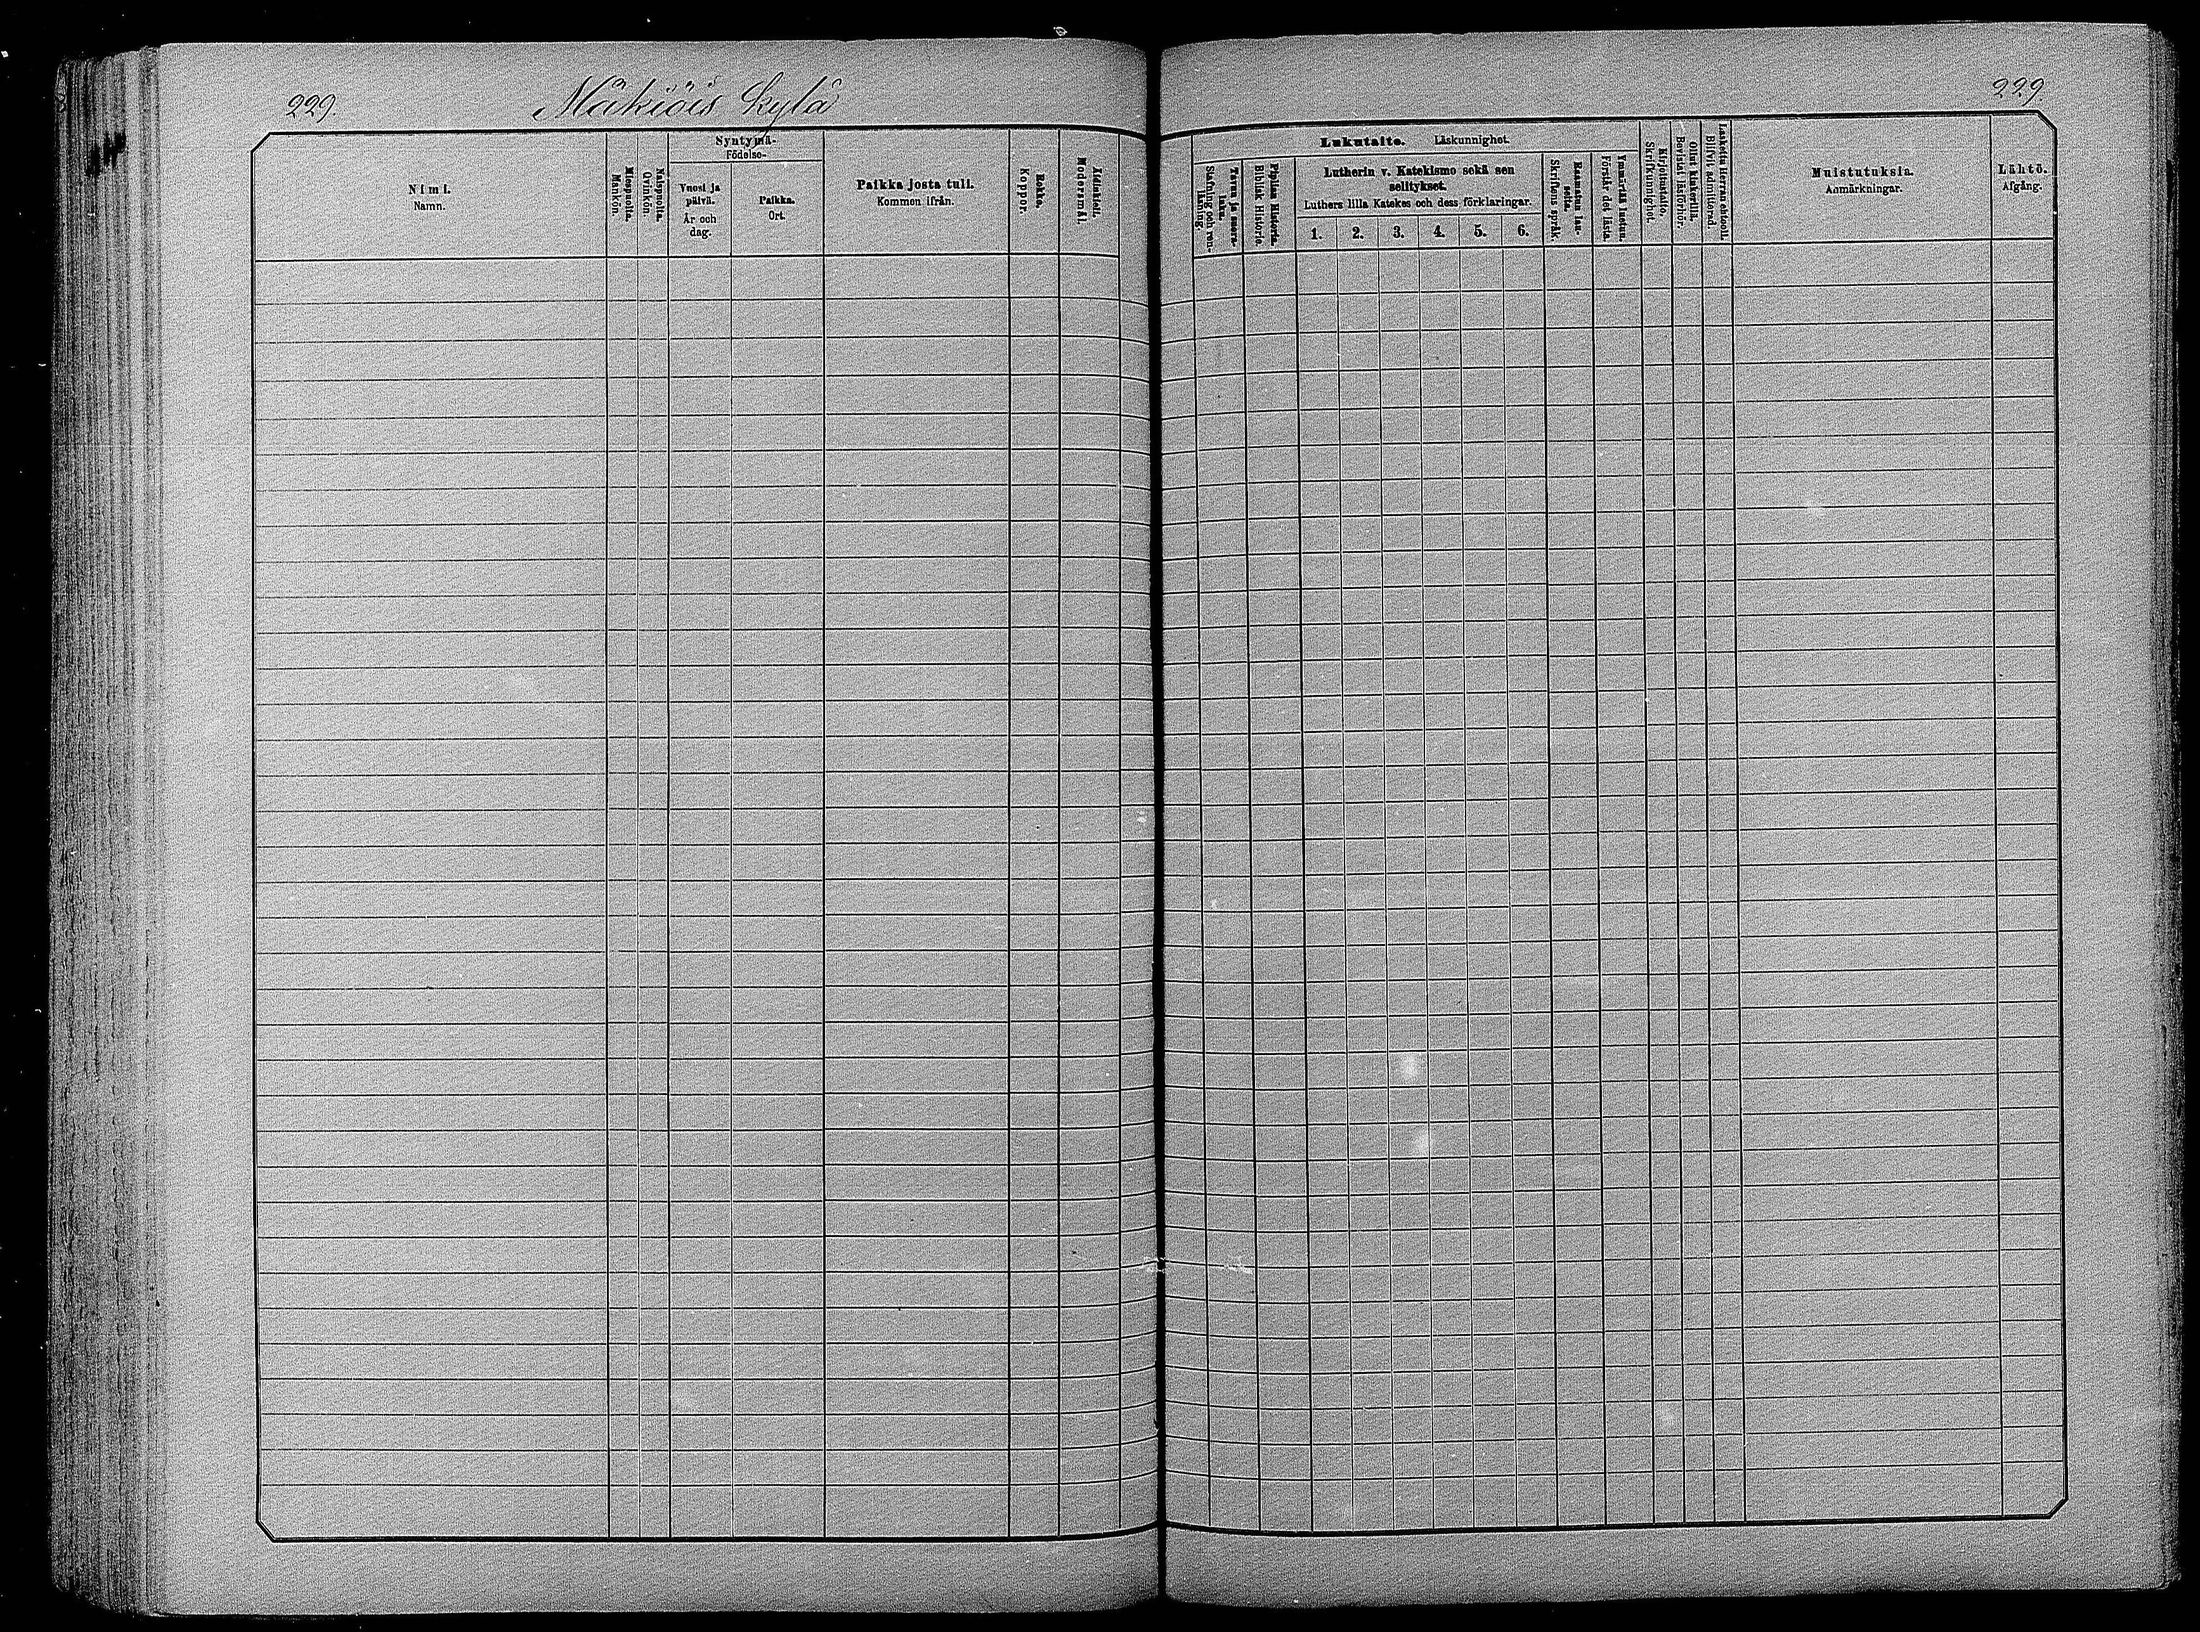 229.
Mäkiäis kylä
229
Nimi.
Namn.
Miespuolia.
Mankön.
Naispuolia.
Qvinkön.
Syntymä-
Födelse-
Vuosi ja
päivä.
År och
dag.
Paikka.
Ort.
Paikka josta tuli.
Kommen ifrån.
Rokko.
Koppor.
Äidinkieli.
Modersmål.
Lukutaito. Läskunnighet.
Tavuu ja suora-
luku.
Stafning och ren-
läsning
Piplian Historia.
Biblisk Historie.
Lutherin v. Katekismo sekä sen
selitykset.
Luthers lilla Katekes och dess förklaringar.
1. 2. 3. 4. 5. 6.
Raamatun lau-
seita.
Skriftens språk
Ymmärtää luetun.
Förstår det lästa.
Kirjoitustaito.
Skrifkunnighet.
Ollut kinkerillä.
Bevistat läsförhör.
Laskettu Herran ehtoolli.
Blifvit admitterad.
Muistutuksia.
Anmärkningar.
Lähtö.
Afgång.